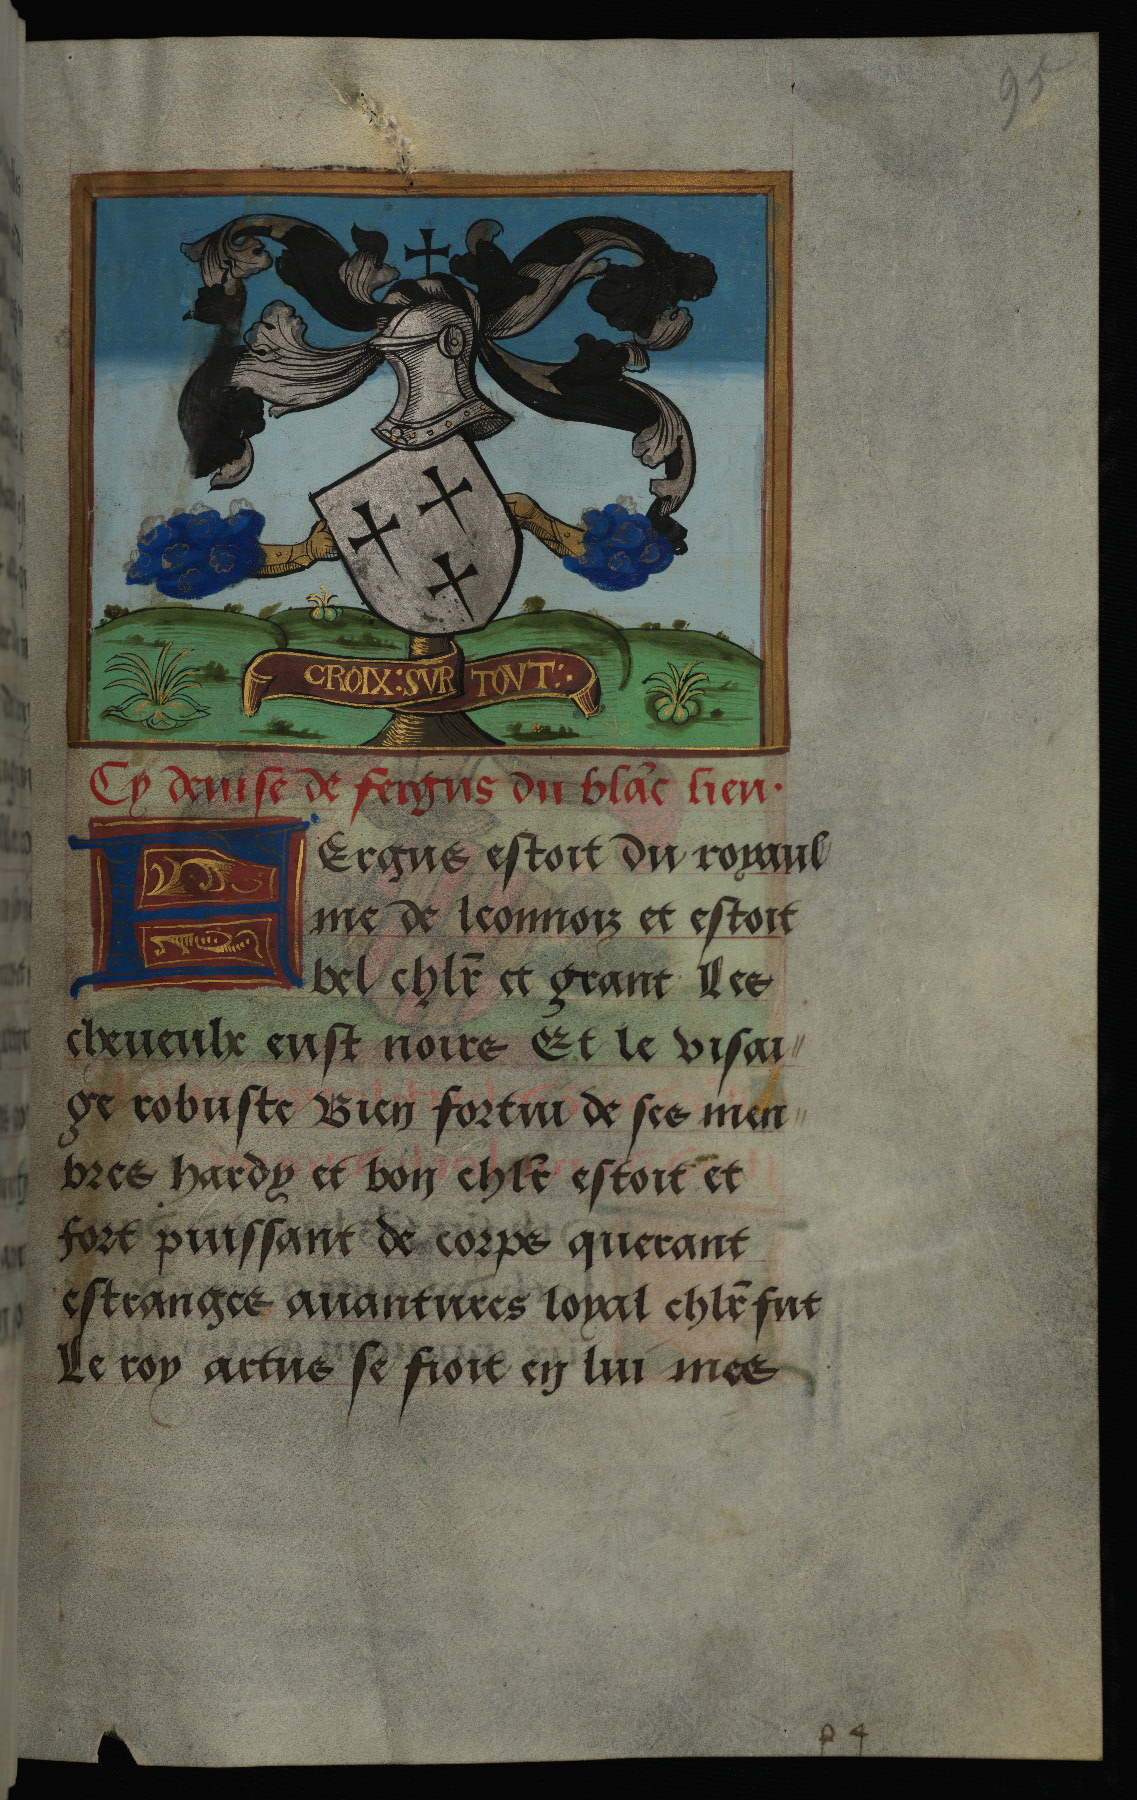 95
CROIX : SVR TOVT :·
Cy deuise de fergus du bla͂c lieu ·
FErgus estoit du royaul
me de leonnoiz et estoit
bel chl̅r et grant Les
cheueulx eust noirs Et le visai〃
ge robuste Bien fortni de ses men〃
bres hardy et bon chl̅r estoit et
fort puissant de corps querant
estranges auantures loyal chl̅r fut
Le roy artus se fioit en lui mes
p 4